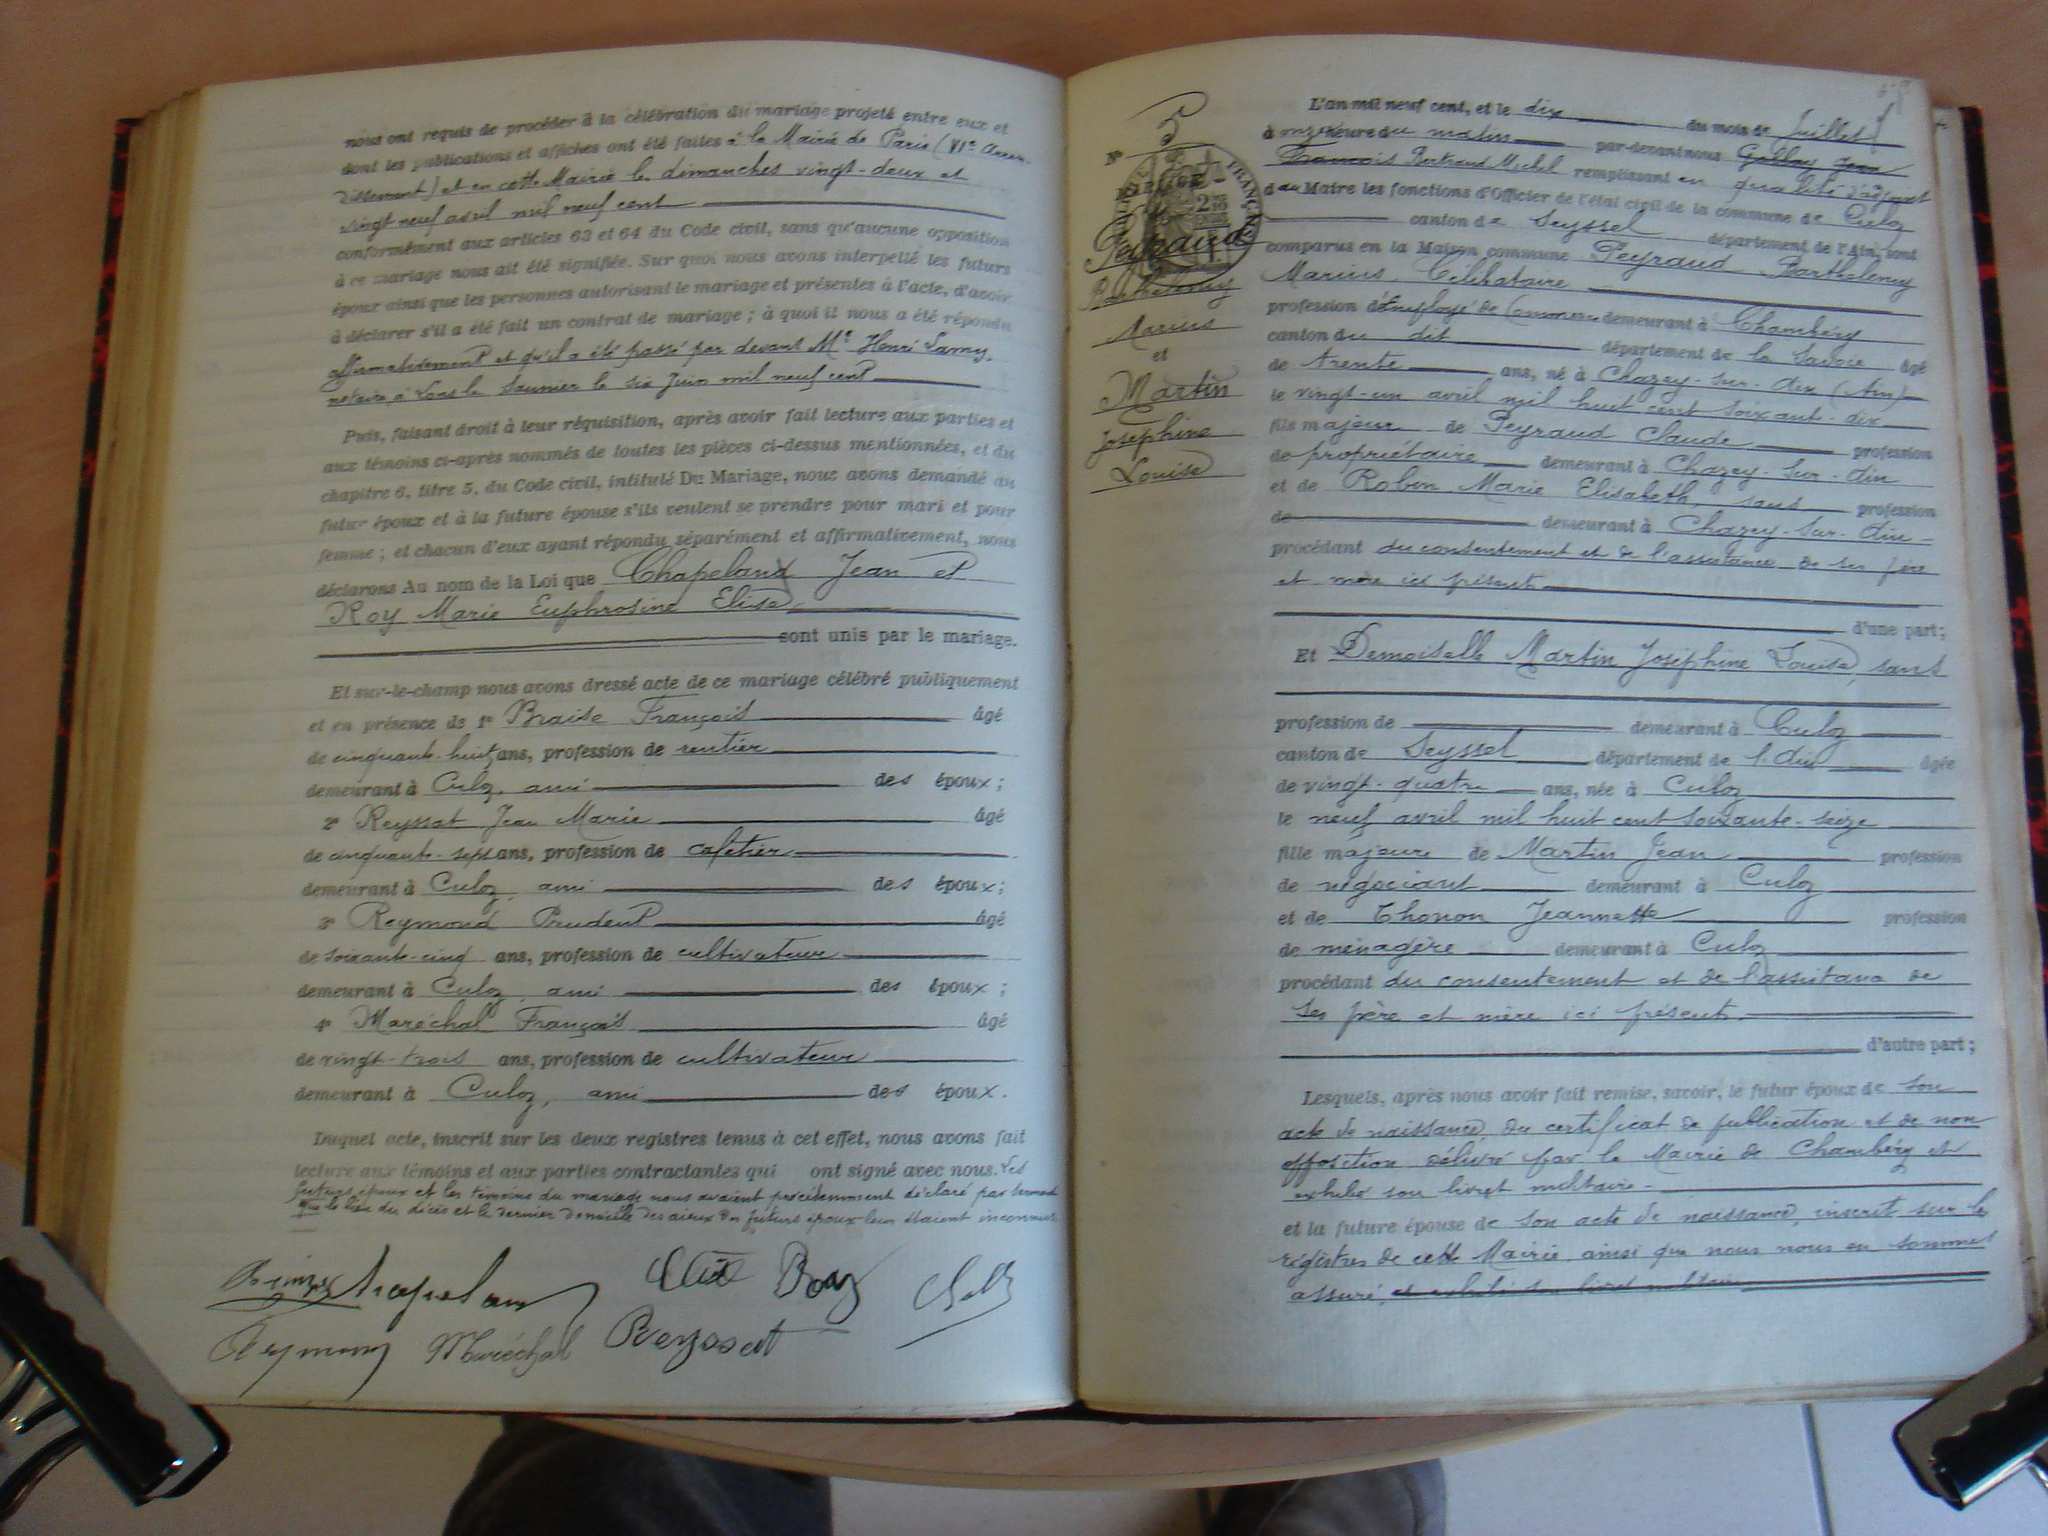 nous ont requis de procéder à la célébration du mariage projeté entre eux et
dont les publications et affiches ont été faites à la Mairie de Paris (VIe Arron-
dissement) et en cette Mairie les dimanches vingt-deux et
vingt neuf avril mil neuf cent
conformément aux articles 63 et 64 du Code civil, sans qu'aucune opposition
à ce mariage nous ait été signifiée. Sur quoi nous avons interpellé les futurs
époux ainsi que les personnes autorisant le mariage et présentes à l'acte, d'avoir
à déclarer s'il a été fait un contrat de mariage; à quoi il nous a été répondu
affirmativement et qu'il a été passé par devant Me Henri Lamy,
notaire à Lons le Saunier le six Juin mil neuf cent
Puis, faisant droit à leur réquisition, après avoir fait lecture aux parties et
aux témoins ci-après nommés de toutes les pièces ci-dessus mentionnées, et du
chapitre 6, titre 5, du Code civil, intitulé Du Mariage, nous avons demandé au
futur époux et à la future épouse s'ils veulent se prendre pour mari et pour
femme; et chacun d'eux ayant répondu séparément et affirmativement, nous
déclarons Au nom de la Loi que Chapeland Jean et
Roy Marie Euphrosine Elise
sont unis par le mariage.
Et sur-le-champ nous avons dressé acte de ce mariage célébré publiquement
et en présence de 1° Braise François âgé
de cinquante-huit ans, profession de rentier
demeurant à Culoz, ami des époux;
2° Reyssat Jean Marie âgé
de cinquante-sept ans, profession de cafetier
demeurant à Culoz, ami des époux;
3° Reymond Prudent âgé
de soixante-cinq ans, profession de cultivateur
demeurant à Culoz, ami des époux;
4° Maréchal François âgé
de vingt-trois ans, profession de cultivateur
demeurant à Culoz, ami des époux.
Duquel acte, inscrit sur les deux registres tenus à cet effet, nous avons fait
lecture aux témoins et aux parties contractantes qui ont signé avec nous. Les
futurs époux et les témoins du mariage nous avaient précédemment déclaré par serment
que le lieu du décès et le dernier domicile des aieux des futurs époux leur étaient inconnus
Chapeland Elise Roy
Reymond Maréchal Reyssat
N° 5
MARIAGE
Peyraud
Barthelemy
Marius
et
Martin
Joséphine
Louise
L'an mil neuf cent, et le dix du mois de Juillet
à onze heure du matin par-devant nous Jean
François Bertrand Michel remplissant en qualité d'adjoint
au Maire les fonctions d'Officier de l'état civil de la commune de Culoz
canton de Seyssel département de l'Ain, sont
comparus en la Maison commune Peyraud Barthelemy
Marius, Célibataire
profession d'employé de Commerce demeurant à Chambéry
canton du dit département de la Savoie âgé
de trente ans, né à Chazey-sur-Ain (Ain)
le vingt-un avril mil huit cent soixant-dix
fils majeur de Peyraud Claude profession
de propriétaire demeurant à Chazey-sur-Ain
et de Robin Marie Elisabeth, sans profession
de demeurant à Chazey-sur-Ain
procédant du consentement et de l'assistance de ses père
et mère ici présents
d'une part;
Et Demoiselle Martin Joséphine Louise, sans
profession de demeurant à Culoz
canton de Seyssel département de l'Ain âgée
de vingt-quatre ans, née à Culoz
le neuf avril mil huit cent soixante-seize
fille majeure de Martin Jean profession
de négociant demeurant à Culoz
et de Thonon Jeannette profession
de ménagère demeurant à Culoz
procédant du consentement et de l'assistance de
ses père et mère ici présents
d'autre part;
Lesquels, après nous avoir fait remise, savoir, le futur époux de son
acte de naissance, du certificat de publication et de non
opposition délivré par la Mairie de Chambéry et
exhibé son livret militaire.
et la future épouse de son acte de naissance, inscrit sur les
régistres de cette Mairie ainsi que nous nous en sommes
assuré, et exhibé son livret militaire